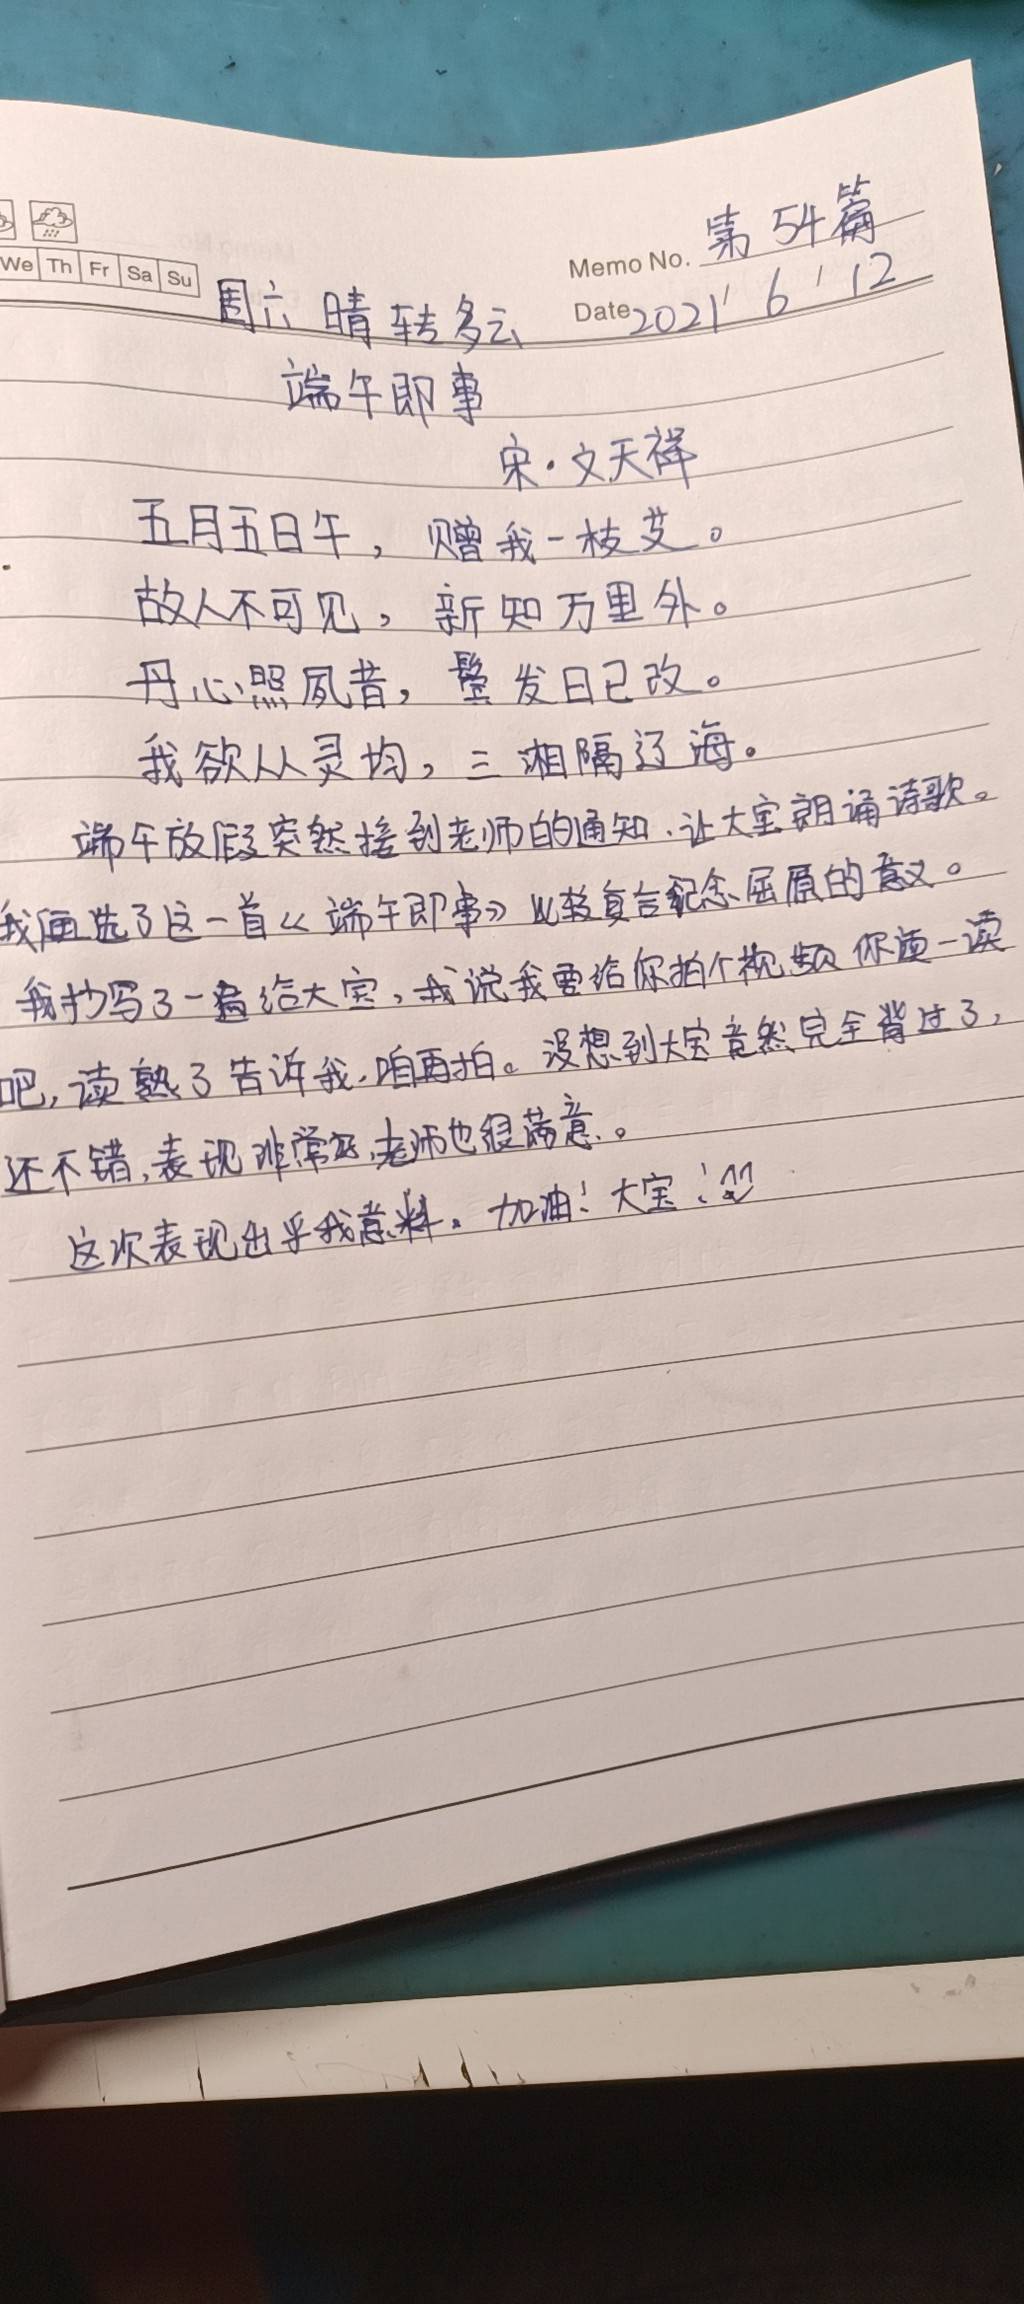 第54篇
Memo No.
We Th Fr Sa Su
周六 晴转多云
Date 2021 / 6 / 12
端午即事
宋·文天祥
五月五日午，赠我一枝艾。
故人不可见，新知万里外。
丹心照夙昔，鬓发日已改。
我欲从灵均，三湘隔辽海。
端午放假突然接到老师的通知，让大宝朗诵诗歌。
我便选了这一首《端午即事》比较复合纪念屈原的意义。
我抄写了一遍给大宝，我说我要给你拍个视频你读一读
吧，读熟了告诉我，咱再拍。没想到大宝竟然完全背过了，
还不错，表现非常好，老师也很满意。
这次表现出乎我意料。加油！大宝！